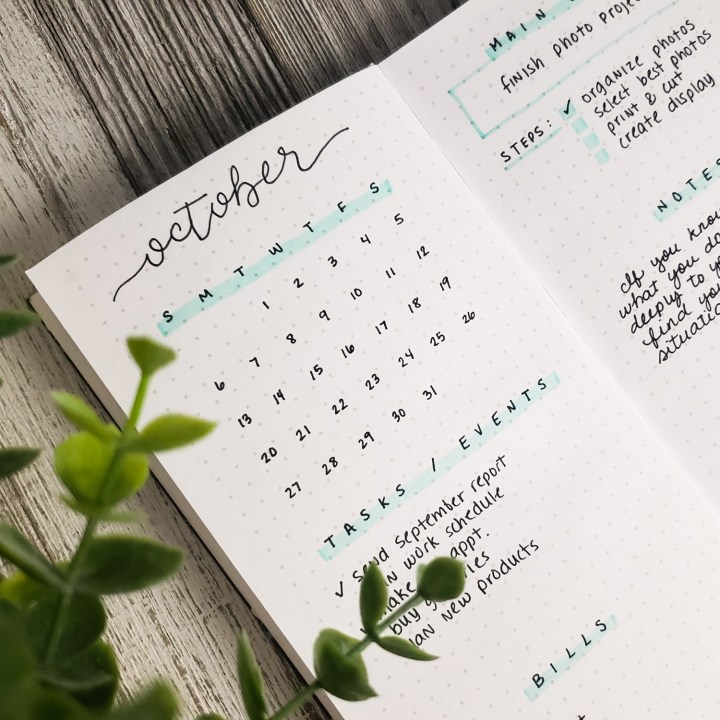 october
S M T W T F S
1 2 3 4 5
6 7 8 9 10 11 12
13 14 15 16 17 18 19
20 21 22 23 24 25 26
27 28 29 30 31
TASKS / EVENTS
✓ send September report
work schedule
appt.
buy
new products
BILLS
MAIN
finish photo
STEPS: ✓ organize photos
select best photos
print & cut
create display
NOTES
If you
what you
deeply to
find